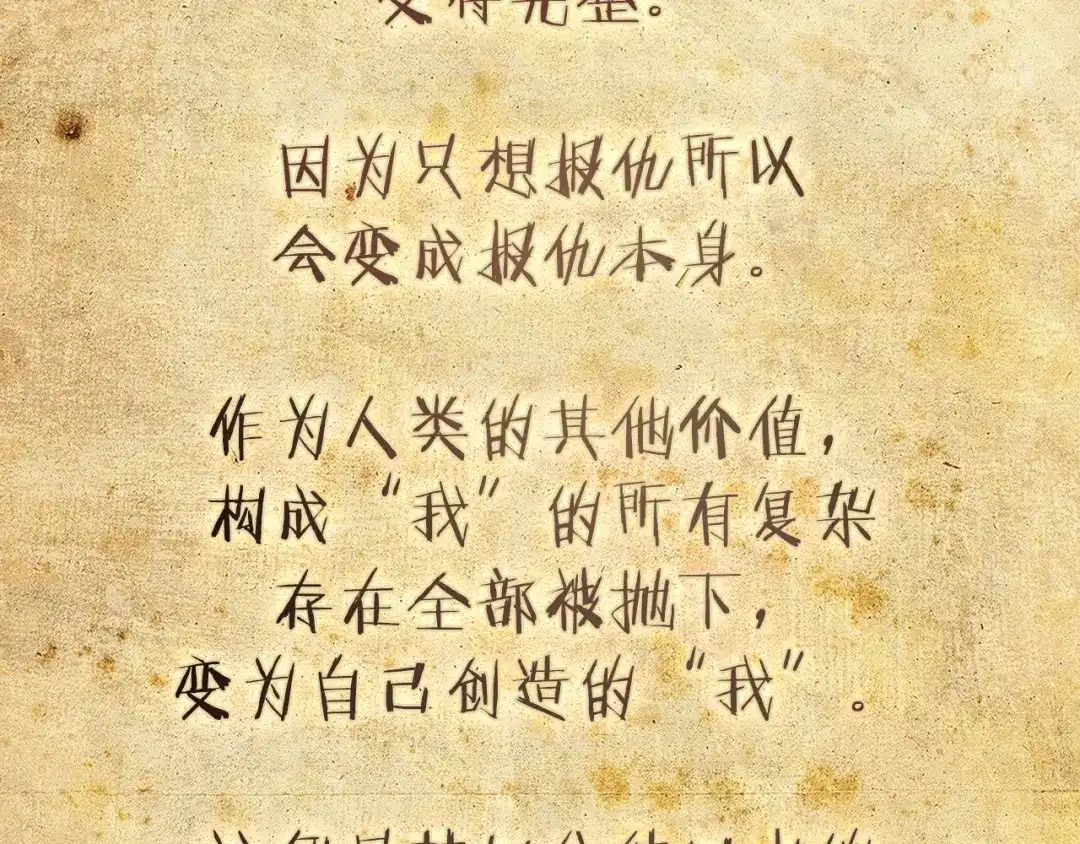 变得完整。
因为只想报仇所以
会变成报仇本身。
作为人类的其他价值，
构成“我”的所有复杂
存在全部被抛下，
变为自己创造的“我”。